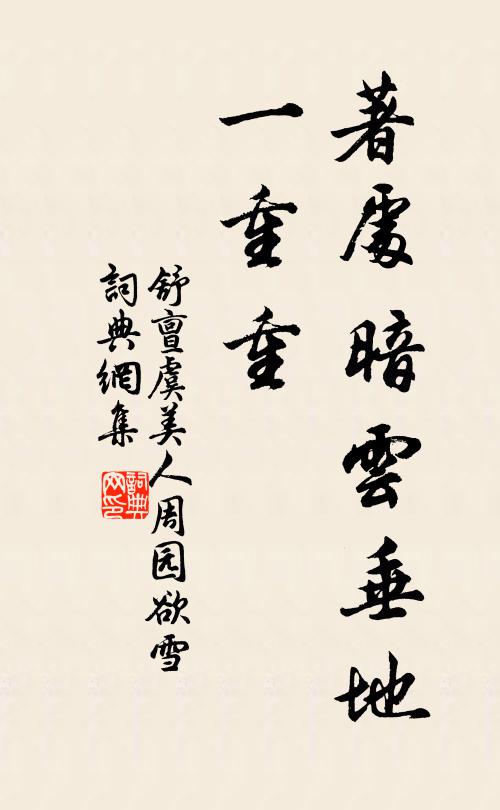 著處暗雲垂地
一重重
舒亶虞美人周园欲雪
詞典網集
詞典
网印